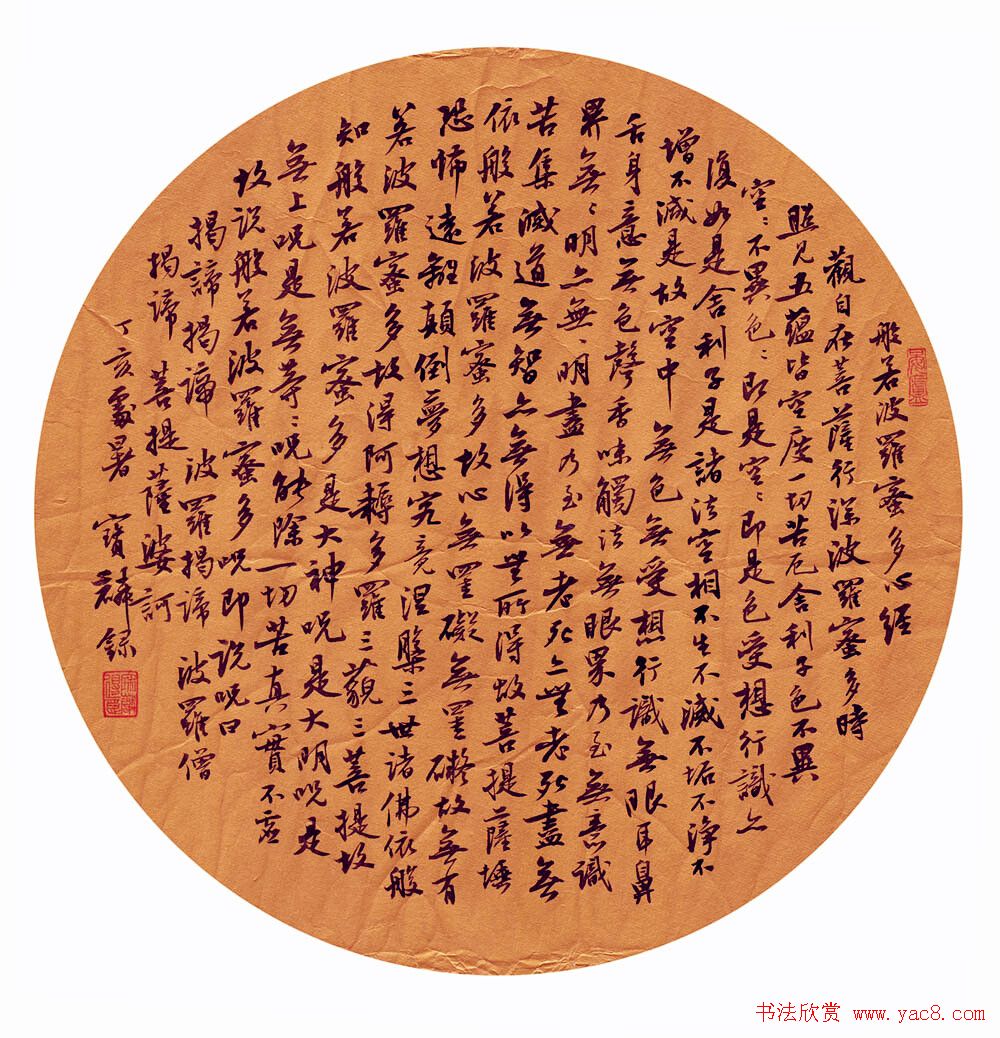 般若波羅蜜多心經
觀自在菩薩行深波羅蜜多時
照見五蘊皆空度一切苦厄舍利子色不異
空:不異色:即是空:即是色受想行識亦
復如是舍利子是諸法空相不生不滅不垢不淨不
增不減是故空中無色無受想行識無眼耳鼻
舌身意無色聲香味觸法無眼界乃至無意識
界無:明亦無:明盡乃至無老死亦無老死盡無
苦集滅道無智亦無得以無所得故菩提薩埵
依般若波羅蜜多故心無罣礙無罣礙故無有
恐怖遠離顛倒夢想究竟涅槃三世諸佛依般
若波羅蜜多故得阿耨多羅三藐三菩提故
知般若波羅蜜多是大神咒是大明咒是
無上咒是無等:咒能除一切苦真實不虛
故說般若波羅蜜多咒即說咒曰
揭諦揭諦 波羅揭諦 波羅僧
揭諦 菩提薩婆訶
丁亥處暑 寶麟錄
书法欣赏 www.yac8.com